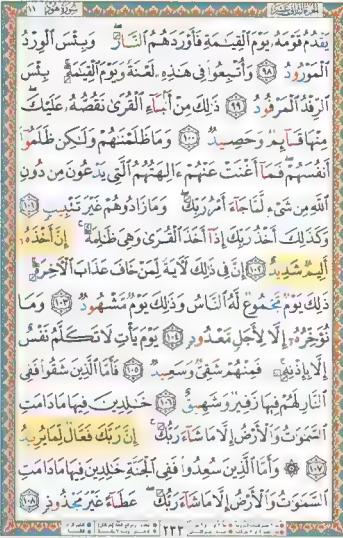 سُورَةُ هُودٍ ١١
يَقْدُمُ قَوْمَهُۥ يَوْمَ ٱلْقِيَٰمَةِ فَأَوْرَدَهُمُ ٱلنَّارَ ۖ وَبِئْسَ ٱلْوِرْدُ
ٱلْمَوْرُودُ ٩٨ وَأُتْبِعُوا۟ فِى هَٰذِهِۦ لَعْنَةً وَيَوْمَ ٱلْقِيَٰمَةِ ۚ بِئْسَ
ٱلرِّفْدُ ٱلْمَرْفُودُ ٩٩ ذَٰلِكَ مِنْ أَنۢبَآءِ ٱلْقُرَىٰ نَقُصُّهُۥ عَلَيْكَ ۖ
مِنْهَا قَآئِمٌ وَحَصِيدٌ ١٠٠ وَمَا ظَلَمْنَٰهُمْ وَلَٰكِن ظَلَمُوٓا۟
أَنفُسَهُمْ ۖ فَمَآ أَغْنَتْ عَنْهُمْ ءَالِهَتُهُمُ ٱلَّتِى يَدْعُونَ مِن دُونِ
ٱللَّهِ مِن شَىْءٍ لَّمَّا جَآءَ أَمْرُ رَبِّكَ ۖ وَمَا زَادُوهُمْ غَيْرَ تَتْبِيبٍ ١٠١
وَكَذَٰلِكَ أَخْذُ رَبِّكَ إِذَآ أَخَذَ ٱلْقُرَىٰ وَهِىَ ظَٰلِمَةٌ ۚ إِنَّ أَخْذَهُۥٓ
أَلِيمٌ شَدِيدٌ ١٠٢ إِنَّ فِى ذَٰلِكَ لَءَايَةً لِّمَنْ خَافَ عَذَابَ ٱلْءَاخِرَةِ ۚ
ذَٰلِكَ يَوْمٌ مَّجْمُوعٌ لَّهُ ٱلنَّاسُ وَذَٰلِكَ يَوْمٌ مَّشْهُودٌ ١٠٣ وَمَا
نُؤَخِّرُهُۥٓ إِلَّا لِأَجَلٍ مَّعْدُودٍ ١٠٤ يَوْمَ يَأْتِ لَا تَكَلَّمُ نَفْسٌ
إِلَّا بِإِذْنِهِۦ ۚ فَمِنْهُمْ شَقِىٌّ وَسَعِيدٌ ١٠٥ فَأَمَّا ٱلَّذِينَ شَقُوا۟ فَفِى
ٱلنَّارِ لَهُمْ فِيهَا زَفِيرٌ وَشَهِيقٌ ١٠٦ خَٰلِدِينَ فِيهَا مَا دَامَتِ
ٱلسَّمَٰوَٰتُ وَٱلْأَرْضُ إِلَّا مَا شَآءَ رَبُّكَ ۚ إِنَّ رَبَّكَ فَعَّالٌ لِّمَا يُرِيدُ
١٠٧ ۞ وَأَمَّا ٱلَّذِينَ سُعِدُوا۟ فَفِى ٱلْجَنَّةِ خَٰلِدِينَ فِيهَا مَا دَامَتِ
ٱلسَّمَٰوَٰتُ وَٱلْأَرْضُ إِلَّا مَا شَآءَ رَبُّكَ ۖ عَطَآءً غَيْرَ مَجْذُوذٍ ١٠٨
٢٣٣